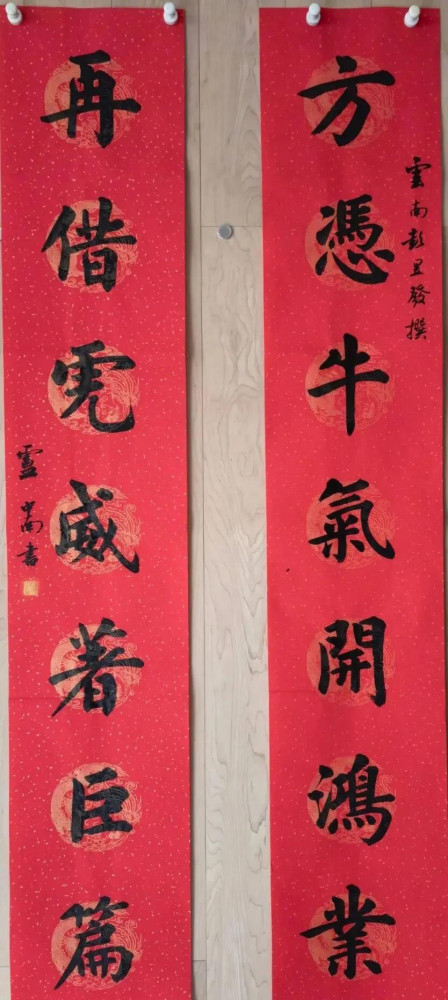 方憑牛氣開鴻業
雲南彭發撰
再借虎威著臣篇
盧中南書